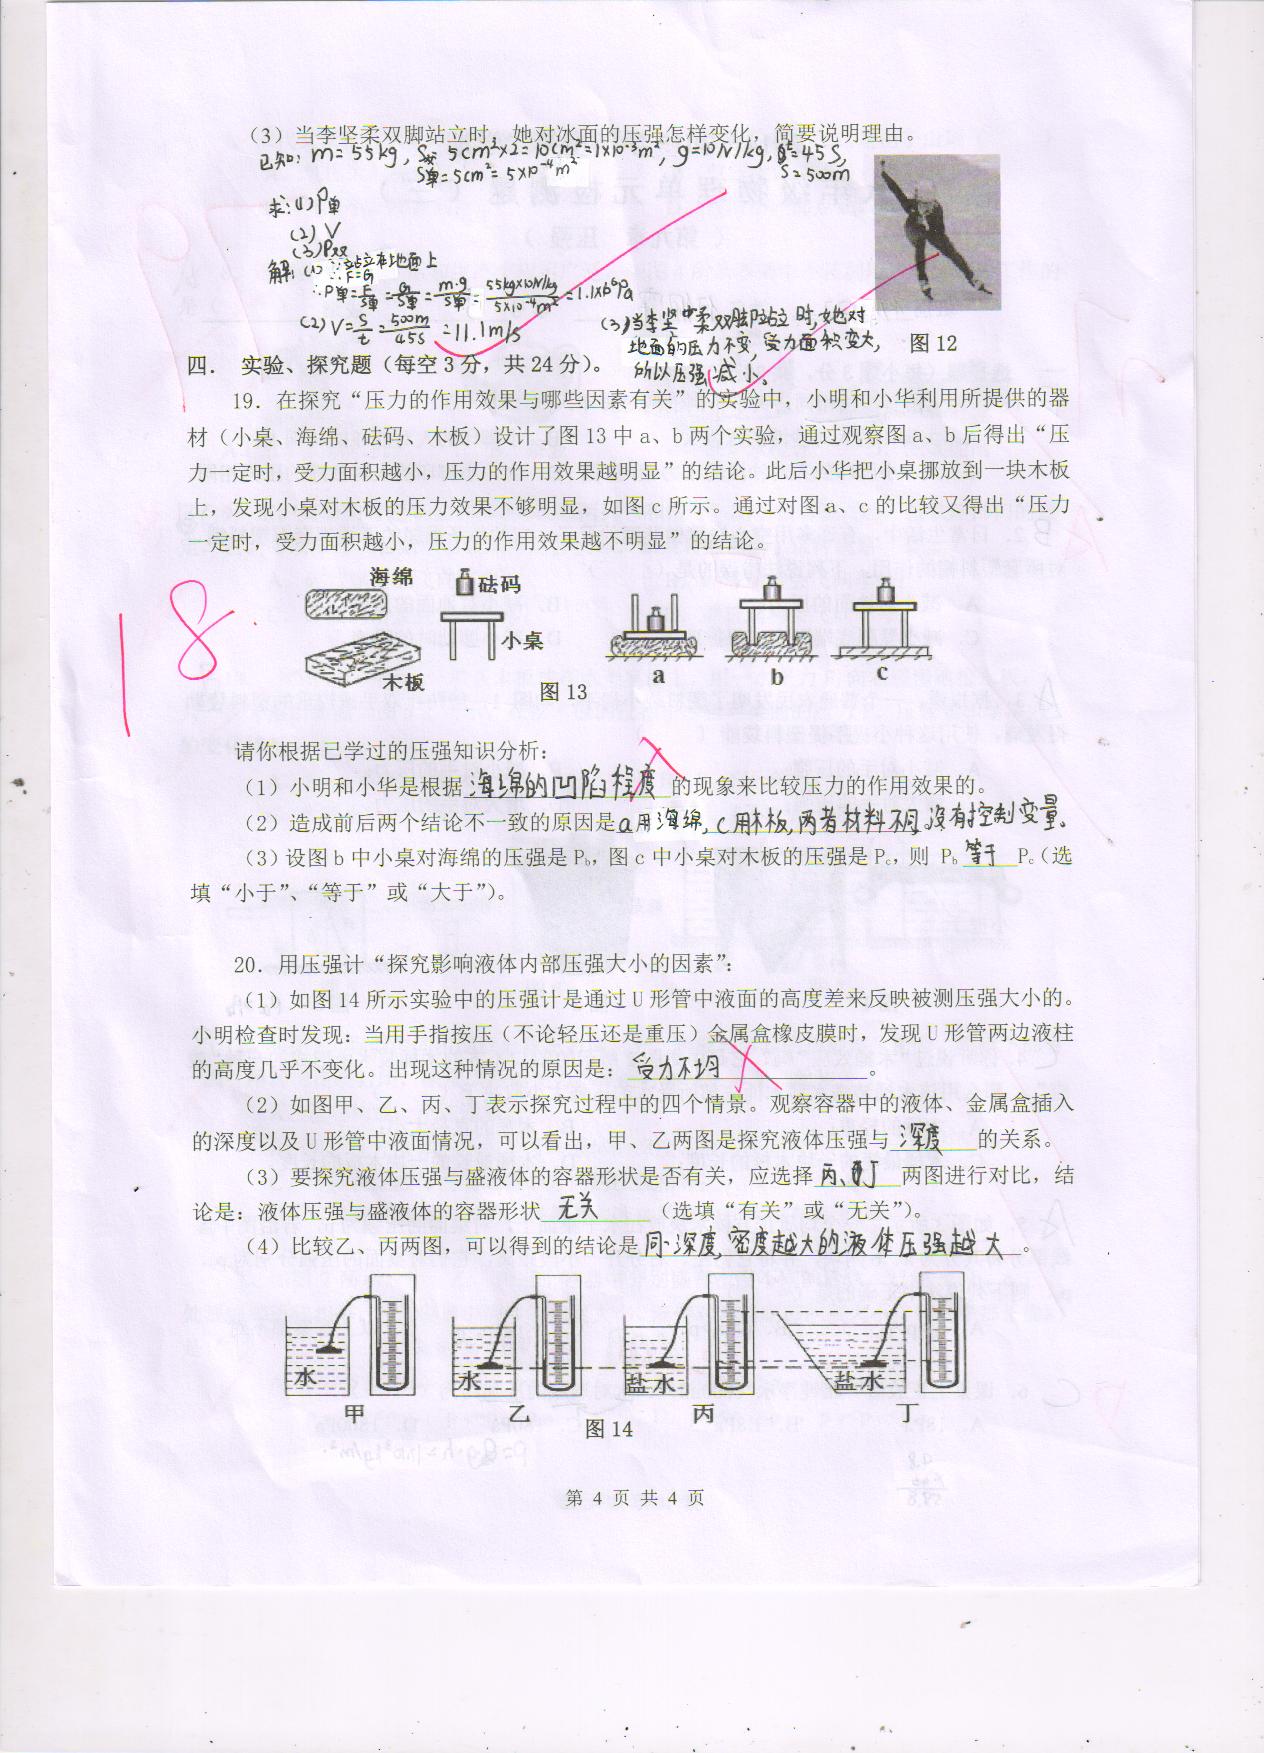 （3）当李坚柔双脚站立时，她对冰面的压强怎样变化，简要说明理由。
已知：m=55kg，S双=5cm²×2=10cm²=1×10⁻³m²，g=10N/kg，t=45s，
S单=5cm²=5×10⁻⁴m² S=500m
求：(1) P单
(2) V
(3) P双
解：(1) ∵站立在地面上
∴F=G
∴P单=F/S单=G/S单=m·g/S单=55kg×10N/kg/5×10⁻⁴m²=1.1×10⁶Pa
(2) V=S/t=500m/45s=11.1m/s
(3)当李坚柔双脚站立时,她对
地面的压力不变,受力面积变大,
所以压强减小。
图12
四． 实验、探究题（每空3分，共24分）。
19．在探究“压力的作用效果与哪些因素有关”的实验中，小明和小华利用所提供的器
材（小桌、海绵、砝码、木板）设计了图13中a、b两个实验，通过观察图a、b后得出“压
力一定时，受力面积越小，压力的作用效果越明显”的结论。此后小华把小桌挪放到一块木板
上，发现小桌对木板的压力效果不够明显，如图c所示。通过对图a、c的比较又得出“压力
一定时，受力面积越小，压力的作用效果越不明显”的结论。
海绵 砝码
小桌
木板
a b c
图13
18
请你根据已学过的压强知识分析：
（1）小明和小华是根据海绵的凹陷程度的现象来比较压力的作用效果的。
（2）造成前后两个结论不一致的原因是a用海绵,c用木板,两者材料不同。没有控制变量。
（3）设图b中小桌对海绵的压强是Pb，图c中小桌对木板的压强是Pc，则 Pb 等于 Pc（选
填“小于”、“等于”或“大于”）。
20．用压强计“探究影响液体内部压强大小的因素”：
（1）如图14所示实验中的压强计是通过U形管中液面的高度差来反映被测压强大小的。
小明检查时发现：当用手指按压（不论轻压还是重压）金属盒橡皮膜时，发现U形管两边液柱
的高度几乎不变化。出现这种情况的原因是：受力不均。
（2）如图甲、乙、丙、丁表示探究过程中的四个情景。观察容器中的液体、金属盒插入
的深度以及U形管中液面情况，可以看出，甲、乙两图是探究液体压强与 深度 的关系。
（3）要探究液体压强与盛液体的容器形状是否有关，应选择 丙、丁 两图进行对比，结
论是：液体压强与盛液体的容器形状 无关 （选填“有关”或“无关”）。
（4）比较乙、丙两图，可以得到的结论是同深度,密度越大的液体压强越大。
水 水 盐水 盐水
甲 乙 丙 丁
图14
第 4 页 共 4 页